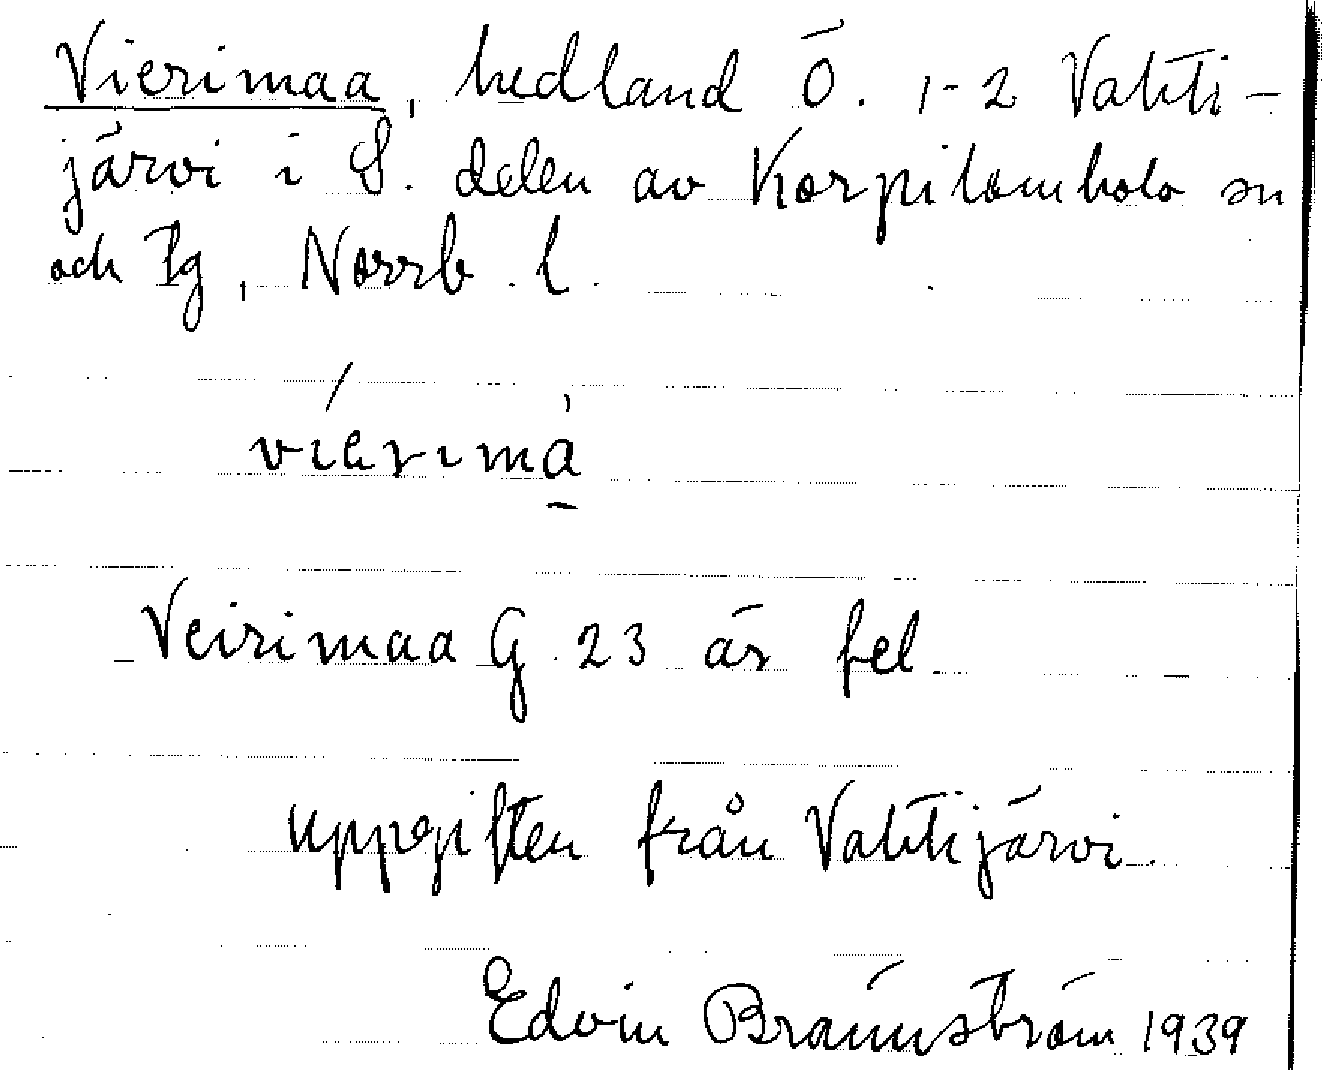 Vierimaa, hedland Ö. 1-2 Vahti-
järvi i S. delen av Korpilombolo sn
och Tg, Norrb. l.
vìerimà̱
Veirimaa G 23 är fel
uppgiften från Vahtijärvi.
Edvin Brännström 1939